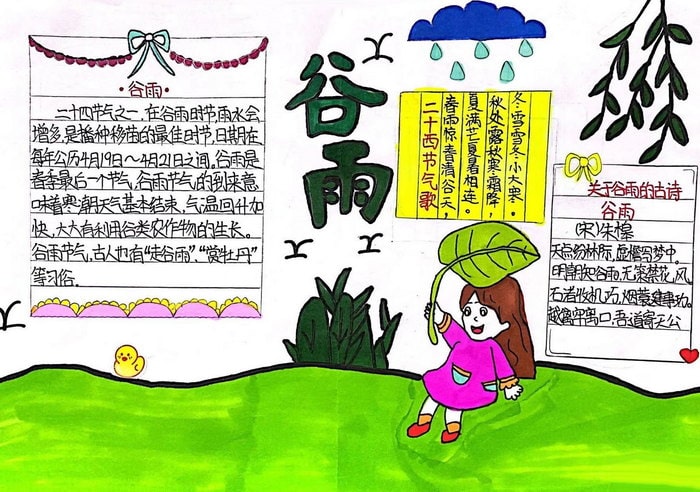 谷雨
·谷雨·
二十四节气之一,在谷雨时节雨水会
增多,是播种移苗的最佳时节,日期在
每年公历4月19日~4月21日之间,谷雨是
春季最后一个节气,谷雨节气的到来意
味着寒潮天气基本结束,气温回升加
快,大大有利用谷类农作物的生长。
谷雨节气,古人也有“走谷雨”,“赏牡丹”
等习俗.
二十西节气歌
春雨惊春清谷天,
夏满芒夏暑相连。
秋处露秋寒霜降,
冬雪雪冬小大寒。
关于谷雨的古诗
谷雨
(宋)朱槔
天点纷林际,虚檐写梦中。
明朝知谷雨,无策禁花,风
石渚收机巧,烟蓑建事功。
越禽牢闭口,吾道寄天公